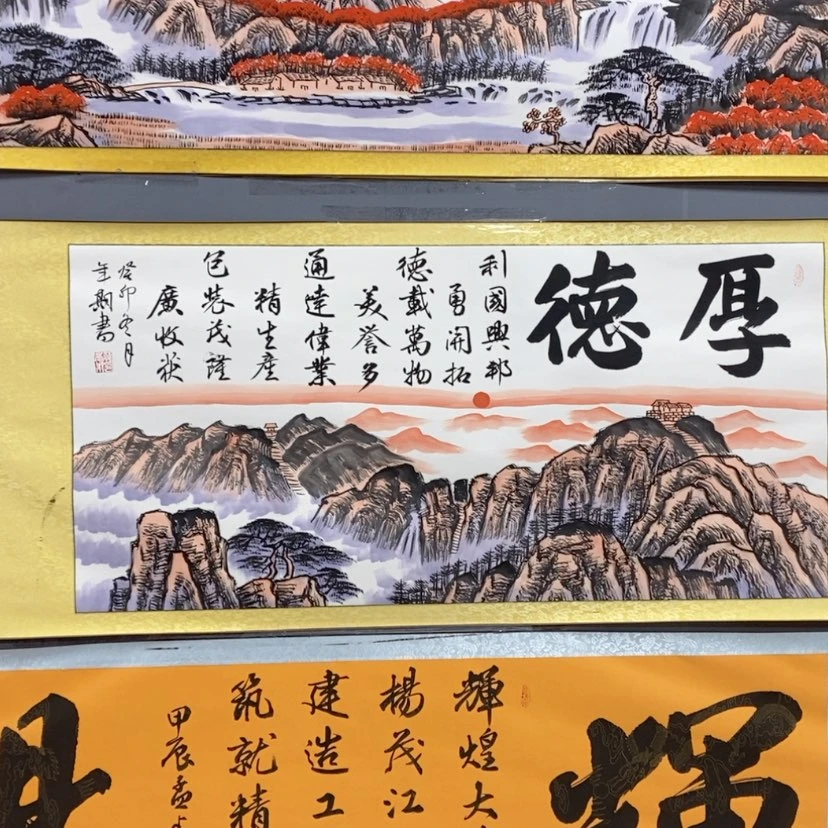 厚德
利國興邦
勇開拓
德載萬物
美譽多
通達偉業
精生產
包裝茂謹
廣收獲
癸卯冬月
書
輝
輝煌大
楊茂江
建造工
筑就精
甲辰孟